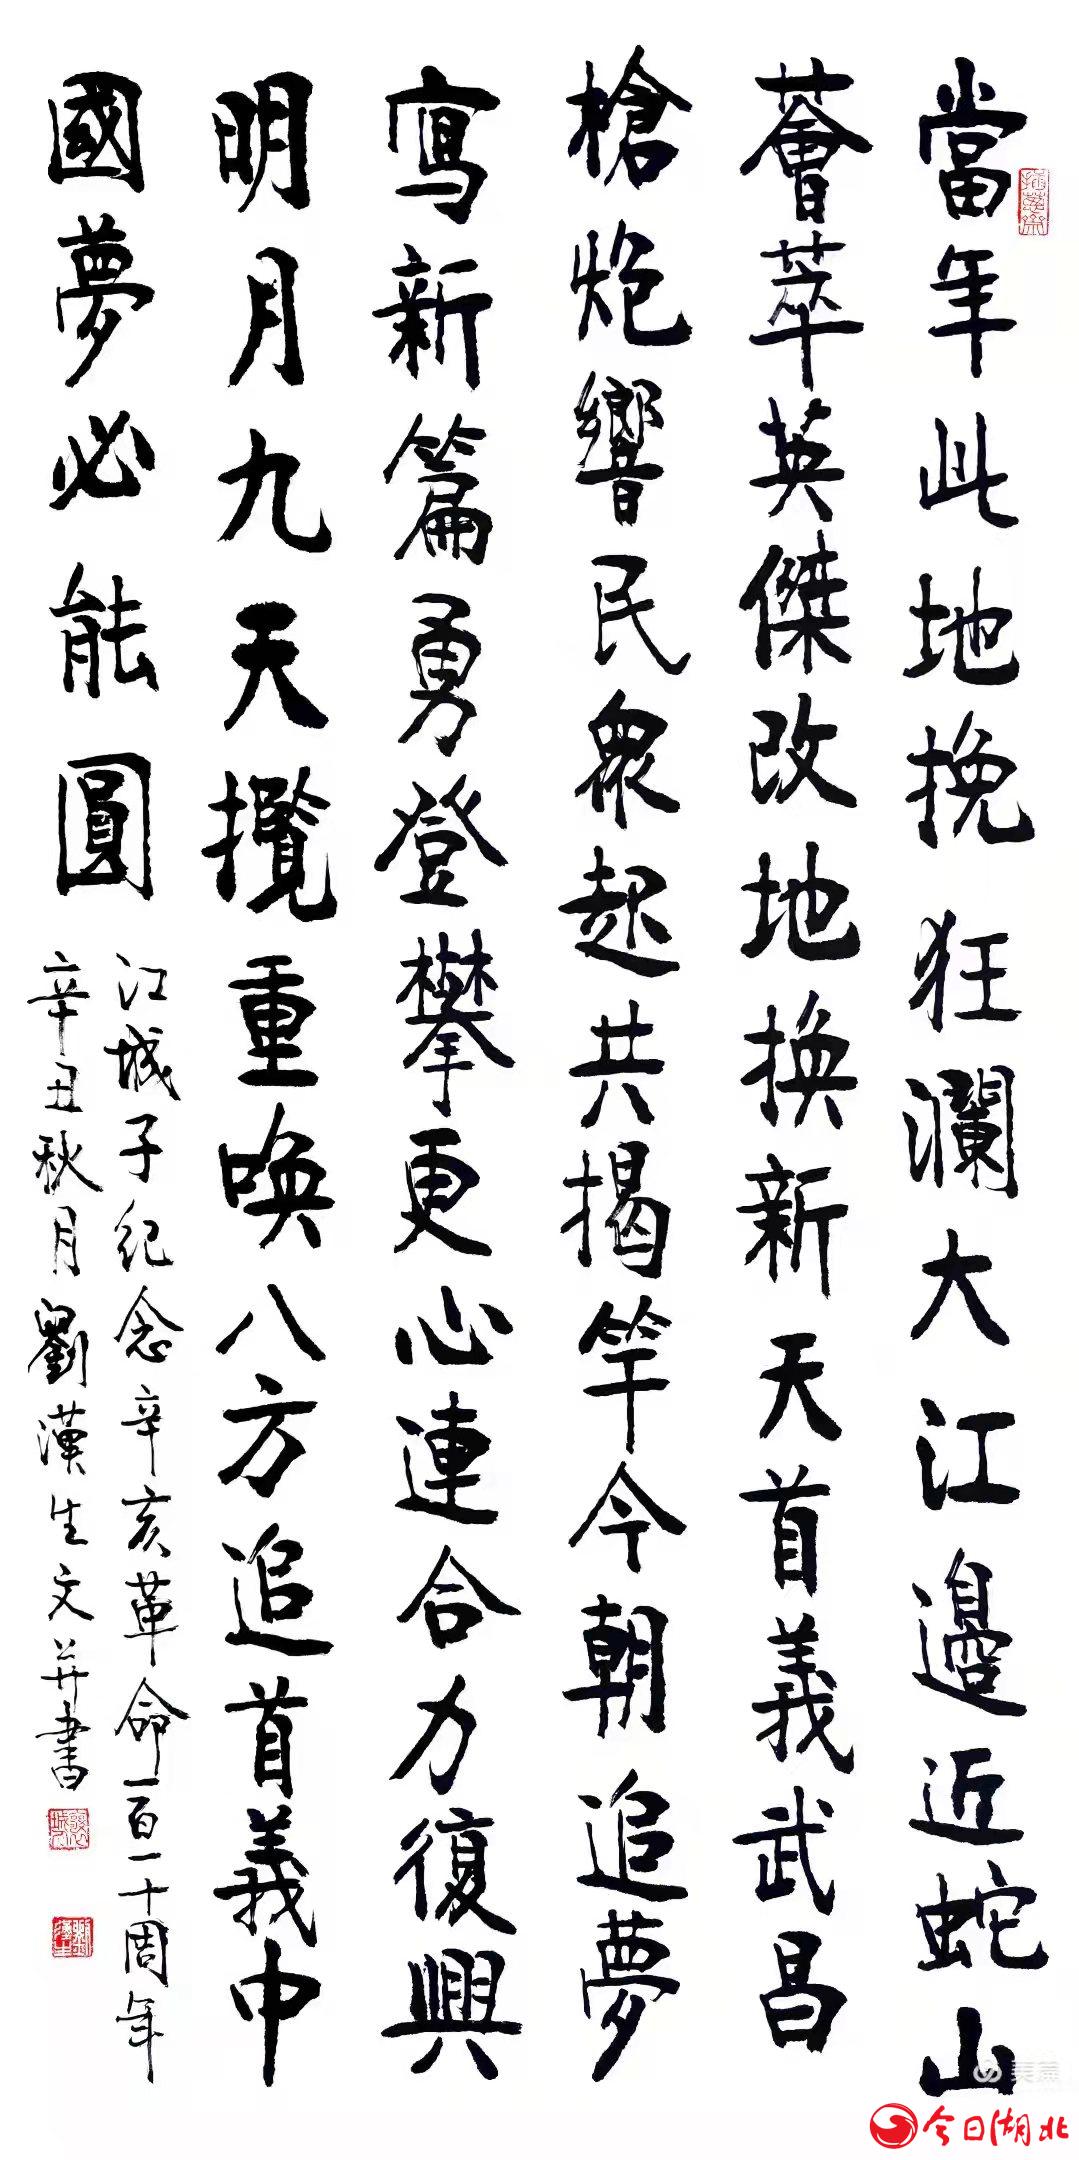 當年此地挽狂瀾大江邊近蛇山
薈萃英傑改地換新天首義武昌
槍炮響民衆起共揭竿今朝追夢
寫新篇勇登攀更心連合力復興
明月九天攬重喚八方追首義中
國夢必能圓
江城子紀念辛亥革命一百一十周年
辛丑秋月劉漢生文并書
美篇
今日湖北